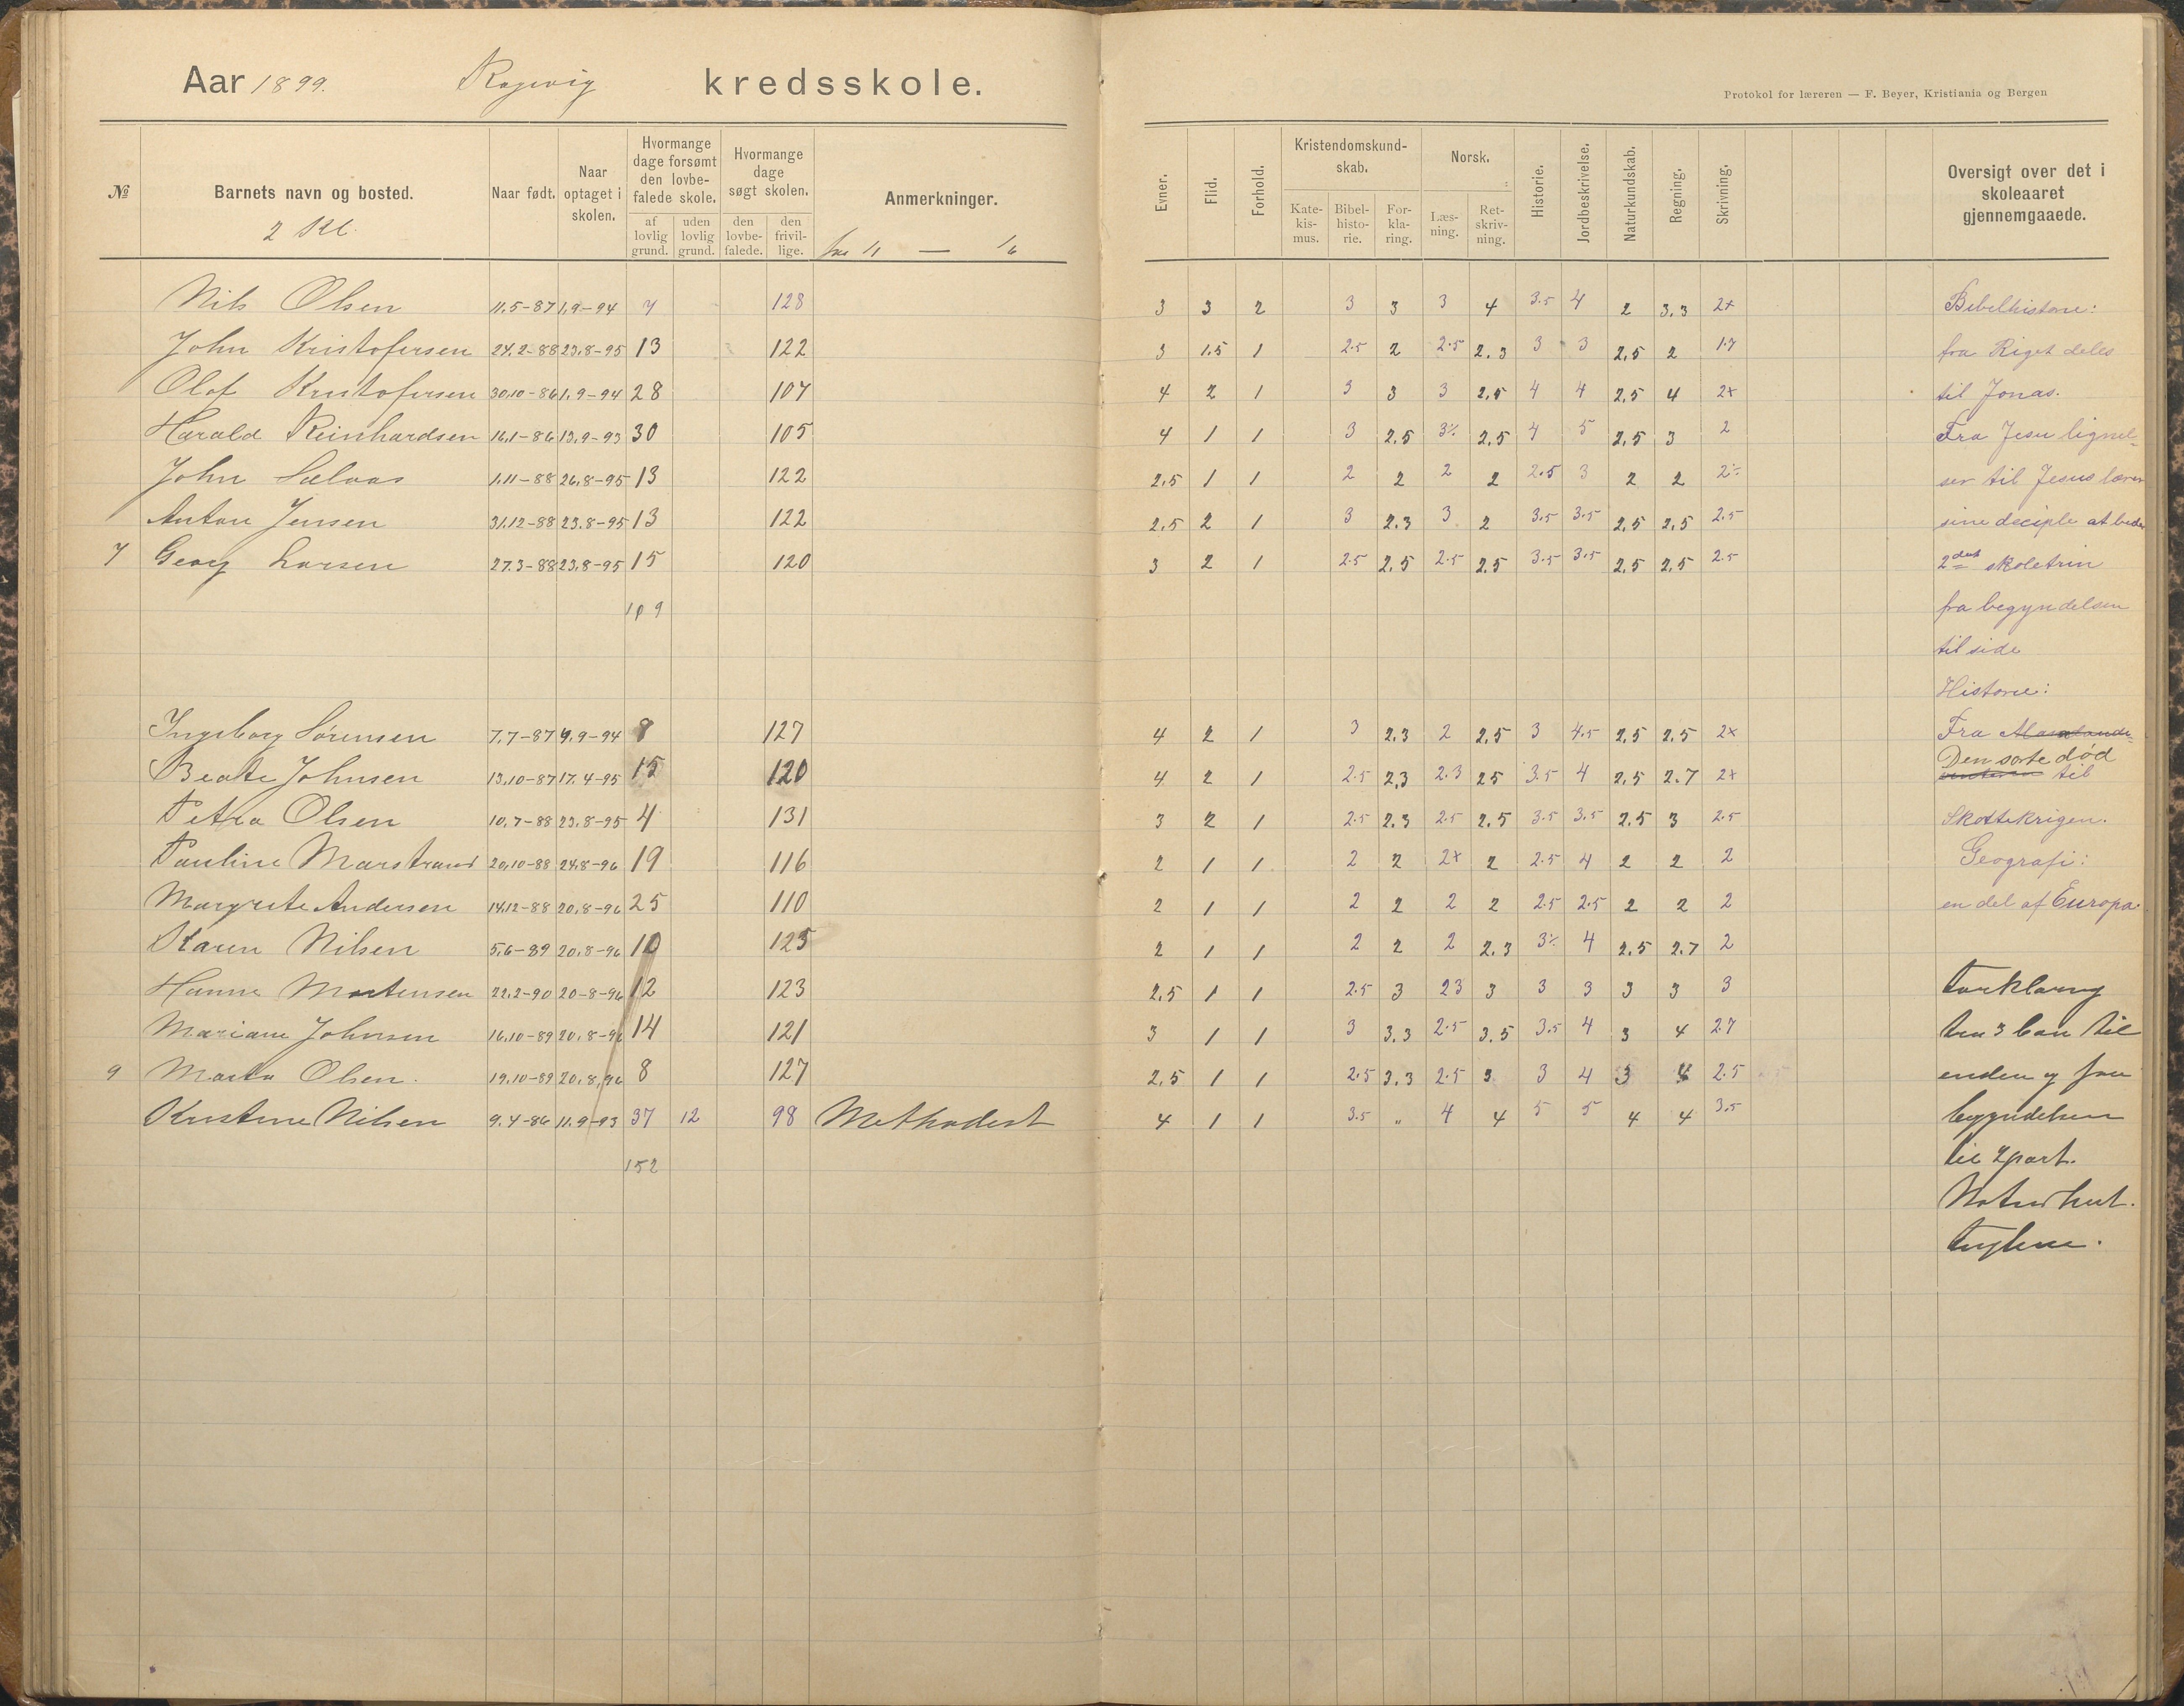 Aar 1899. Ragevig kredsskole.
Protokol for læreren — F. Beyer, Kristiania og Bergen
№ Barnets navn og bosted. Naar født. Naar optaget i skolen. Hvormange dage forsømt den lovbefalede skole. af lovlig grund. uden lovlig grund. Hvormange dage søgt skolen. den lovbefalede. den frivillige. Anmerkninger. Evner. Flid. Forhold. Kristendomskundskab. Katekismus. Bibelhistorie. Forklaring. Norsk. Læsning. Retskrivning. Historie. Jordbeskrivelse. Naturkundskab. Regning. Skrivning. Oversigt over det i skoleaaret gjennemgaaede.
2 Kl. fra 1/1 — 1/6
Nils Olsen 11.5-87 1.9-94 7 128 3 3 2 3 3 3 4 3.5 4 2 3.3 2+ Bibelhistorie:
John Kristofersen 24.2-88 23.8-95 13 122 3 1.5 1 2.5 2 2.5 2.3 3 3 2.5 2 1.7 fra Riget deles
Olof Kristofersen 30.10-86 1.9-94 28 107 4 2 1 3 3 3 2.5 4 4 2.5 4 2+ til Jonas.
Harald Reinhardsen 16.1-86 13.9-93 30 105 4 1 1 3 2.5 3% 2.5 4 5 2.5 3 2 Fra Jesu lignel-
John 1.11-88 26.8-95 13 122 2.5 1 1 2 2 2 2 2.5 3 2 2 2÷ ser til Jesus lærer
Anton Jensen 31.12-88 23.8-95 13 122 2.5 2 1 3 2.3 3 2 3.5 3.5 2.5 2.5 2.5 sine deciple at bede
7 Georg Larsen 27.3-88 23.8-95 15 120 3 2 1 2.5 2.5 2.5 2.5 3.5 3.5 2.5 2.5 2.5 2det skoletrin
109 fra begyndelsen
til side
Historie:
Ingeborg Sørensen 7.7-87 4.9-94 8 127 4 2 1 3 2.3 2 2.5 3 4.5 2.5 2.5 2+ Fra
Den sorte død
Beate Johnsen 13.10-87 17.4-95 15 120 4 2 1 2.5 2.3 2.3 2.5 3.5 4 2.5 2.7 2+ til
Petra Olsen 10.7-88 23.8-95 4 131 3 2 1 2.5 2.3 2.5 2.5 3.5 3.5 2.5 3 2.5 Skottekrigen.
Pauline Marstrand 20.10-88 24.8-96 19 116 2 1 1 2 2 2+ 2 2.5 4 2 2 2 Geografi:
Margrete Andersen 14.12-88 20.8-96 25 110 2 1 1 2 2 2 2 2.5 2.5 2 2 2 en del af Europa.
Karen Nilsen 5.6-89 20.8-96 10 125 2 1 1 2 2 2 2.3 3% 4 2.5 2.7 2
Hanna Mortensen 22.2-90 20-8-96 12 123 2.5 1 1 2.5 3 23 3 3 3 3 3 3 Forklaring
Mariane Johnsen 16.10-89 20.8-96 14 121 3 1 1 3 3.3 2.5 3.5 3.5 4 3 4 2.7 fra 3 til
9 Marta Olsen. 19.10-89 20.8.96 8 127 2.5 1 1 2.5 3.3 2.5 3 3 4 3 4 2.5 enden og fra
Kristine Nilsen 9.4-86 11.9-93 37 12 98 Methodist 4 1 1 3.5 „ 4 4 5 5 4 4 3.5 begyndelsen
152 til 2 part.
Naturhist.
Fuglene.